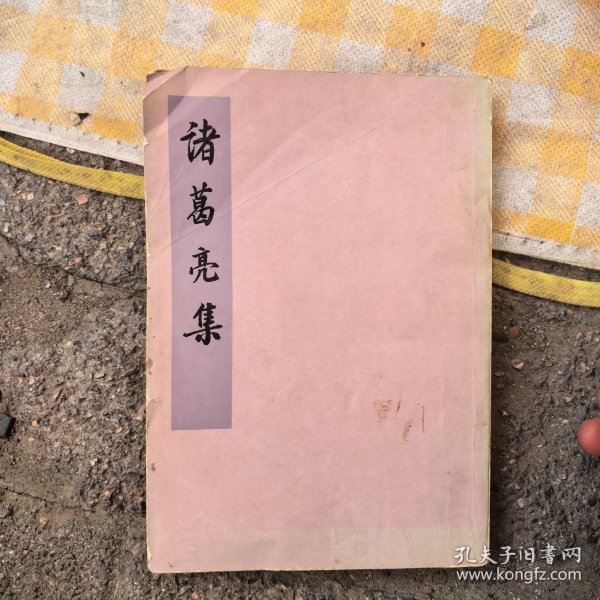 诸葛亮集
孔夫子旧书网
www.kongfz.com